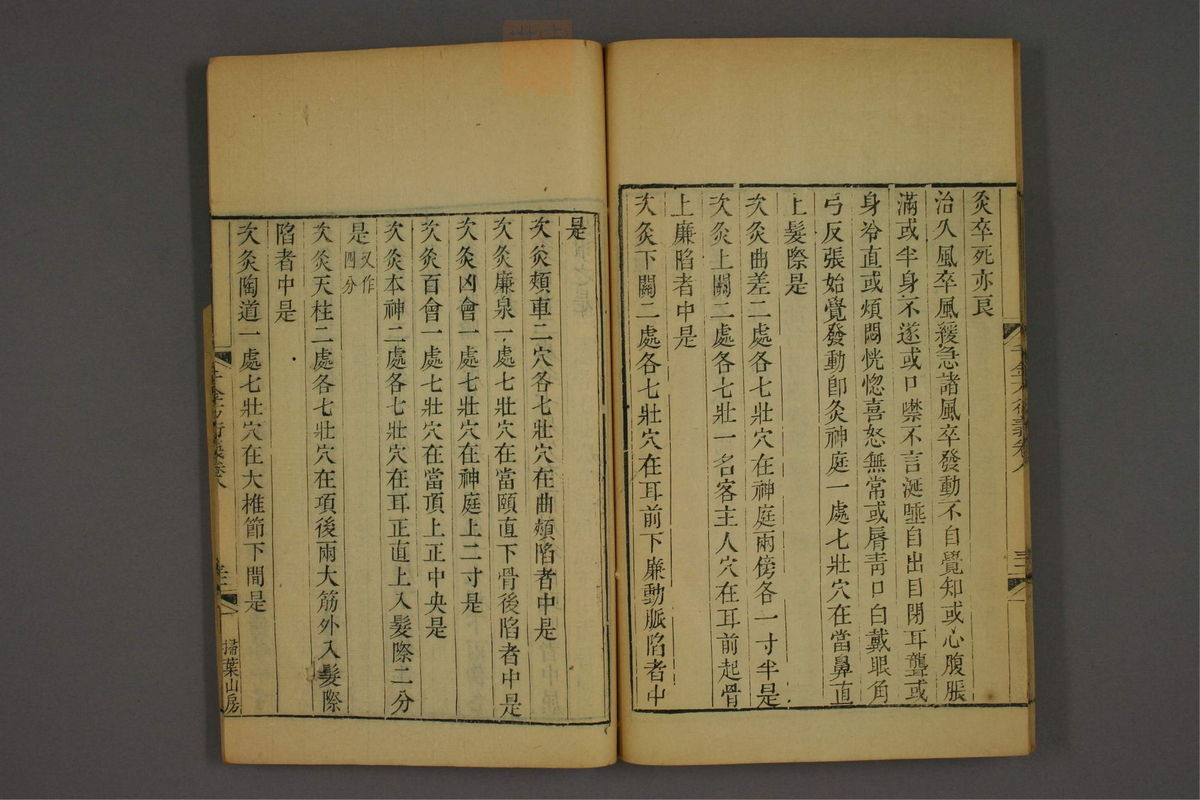 灸卒死亦良
治久風卒風緩急諸風卒發動不自覺知或心腹脹
滿或半身不遂或口噤不言涎唾自出目閉耳聾或
身冷直或煩悶恍惚喜怒無常或脣靑口白戴眼角
弓反張始覺發動卽灸神庭一處七壯穴在當鼻直
上髮際是
次灸曲差二處各七壯穴在神庭兩傍各一寸半是
次灸上關二處各七壯一名客主人穴在耳前起骨
上廉陷者中是
次灸下關二處各七壯穴在耳前下廉動脈陷者中
是
次灸頰車二穴各七壯穴在曲頰陷者中是
次灸廉泉一處七壯穴在當頤直下骨後陷者中是
次灸囟會一處七壯穴在神庭上二寸是
次灸百會一處七壯穴在當頂上正中央是
次灸本神二處各七壯穴在耳正直上入髮際二分
是又作四分
次灸天柱二處各七壯穴在項後兩大筋外入髮際
陷者中是
次灸陶道一處七壯穴在大椎節下間是
千金方衍義卷八
掃葉山房